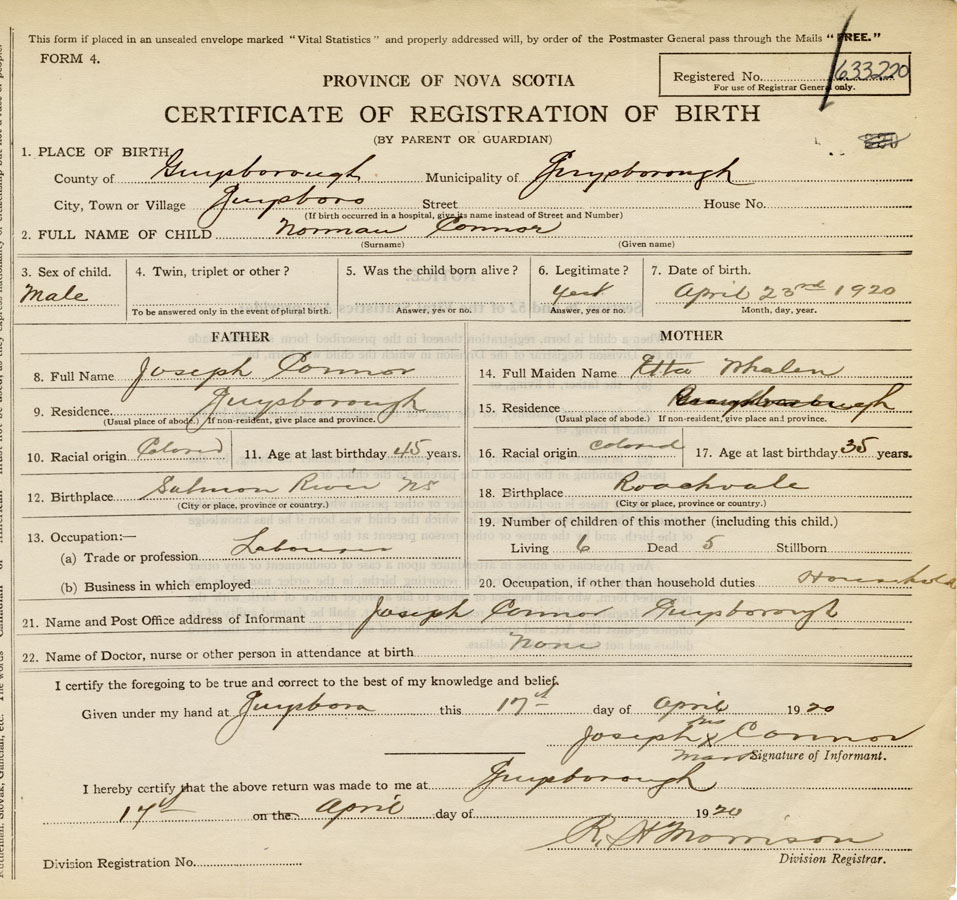 This form if placed in an unsealed envelope marked "Vital Statistics" and properly addressed will, by order of the Postmaster General pass through the Mails "FREE."
FORM 4.
PROVINCE OF NOVA SCOTIA
Registered No. 633220
For use of Registrar General only.
CERTIFICATE OF REGISTRATION OF BIRTH
(BY PARENT OR GUARDIAN)
1. PLACE OF BIRTH
County of Guysborough Municipality of Guysborough
City, Town or Village Guysboro Street House No.
(If birth occurred in a hospital, give its name instead of Street and Number)
2. FULL NAME OF CHILD Norman Connor
(Surname) (Given name)
3. Sex of child. 4. Twin, triplet or other? 5. Was the child born alive? 6. Legitimate? 7. Date of birth.
Male April 23rd 1920
To be answered only in the event of plural birth. Answer, yes or no. Answer, yes or no. Month, day, year.
FATHER MOTHER
8. Full Name Joseph Connor 14. Full Maiden Name Etta Whalen
9. Residence. Guysborough 15. Residence
(Usual place of abode.) If non-resident, give place and province. (Usual place of abode.) If non-resident, give place and province.
10. Racial origin Colored 11. Age at last birthday 45 years. 16. Racial origin colored 17. Age at last birthday 35 years.
12. Birthplace Salmon River NS 18. Birthplace Roachvale
(City or place, province or country.) (City or place, province or country.)
13. Occupation:— 19. Number of children of this mother (including this child.)
(a) Trade or profession Labourer Living 6 Dead 5 Stillborn
(b) Business in which employed 20. Occupation, if other than household duties Household
21. Name and Post Office address of Informant Joseph Connor Guysborough
22. Name of Doctor, nurse or other person in attendance at birth None
I certify the foregoing to be true and correct to the best of my knowledge and belief.
Given under my hand at Guysboro this 17th day of April 1920
Joseph his x Connor
mark Signature of Informant.
I hereby certify that the above return was made to me at Guysborough
17th on the April day of 1920
R. H Morrison
Division Registration No. Division Registrar.